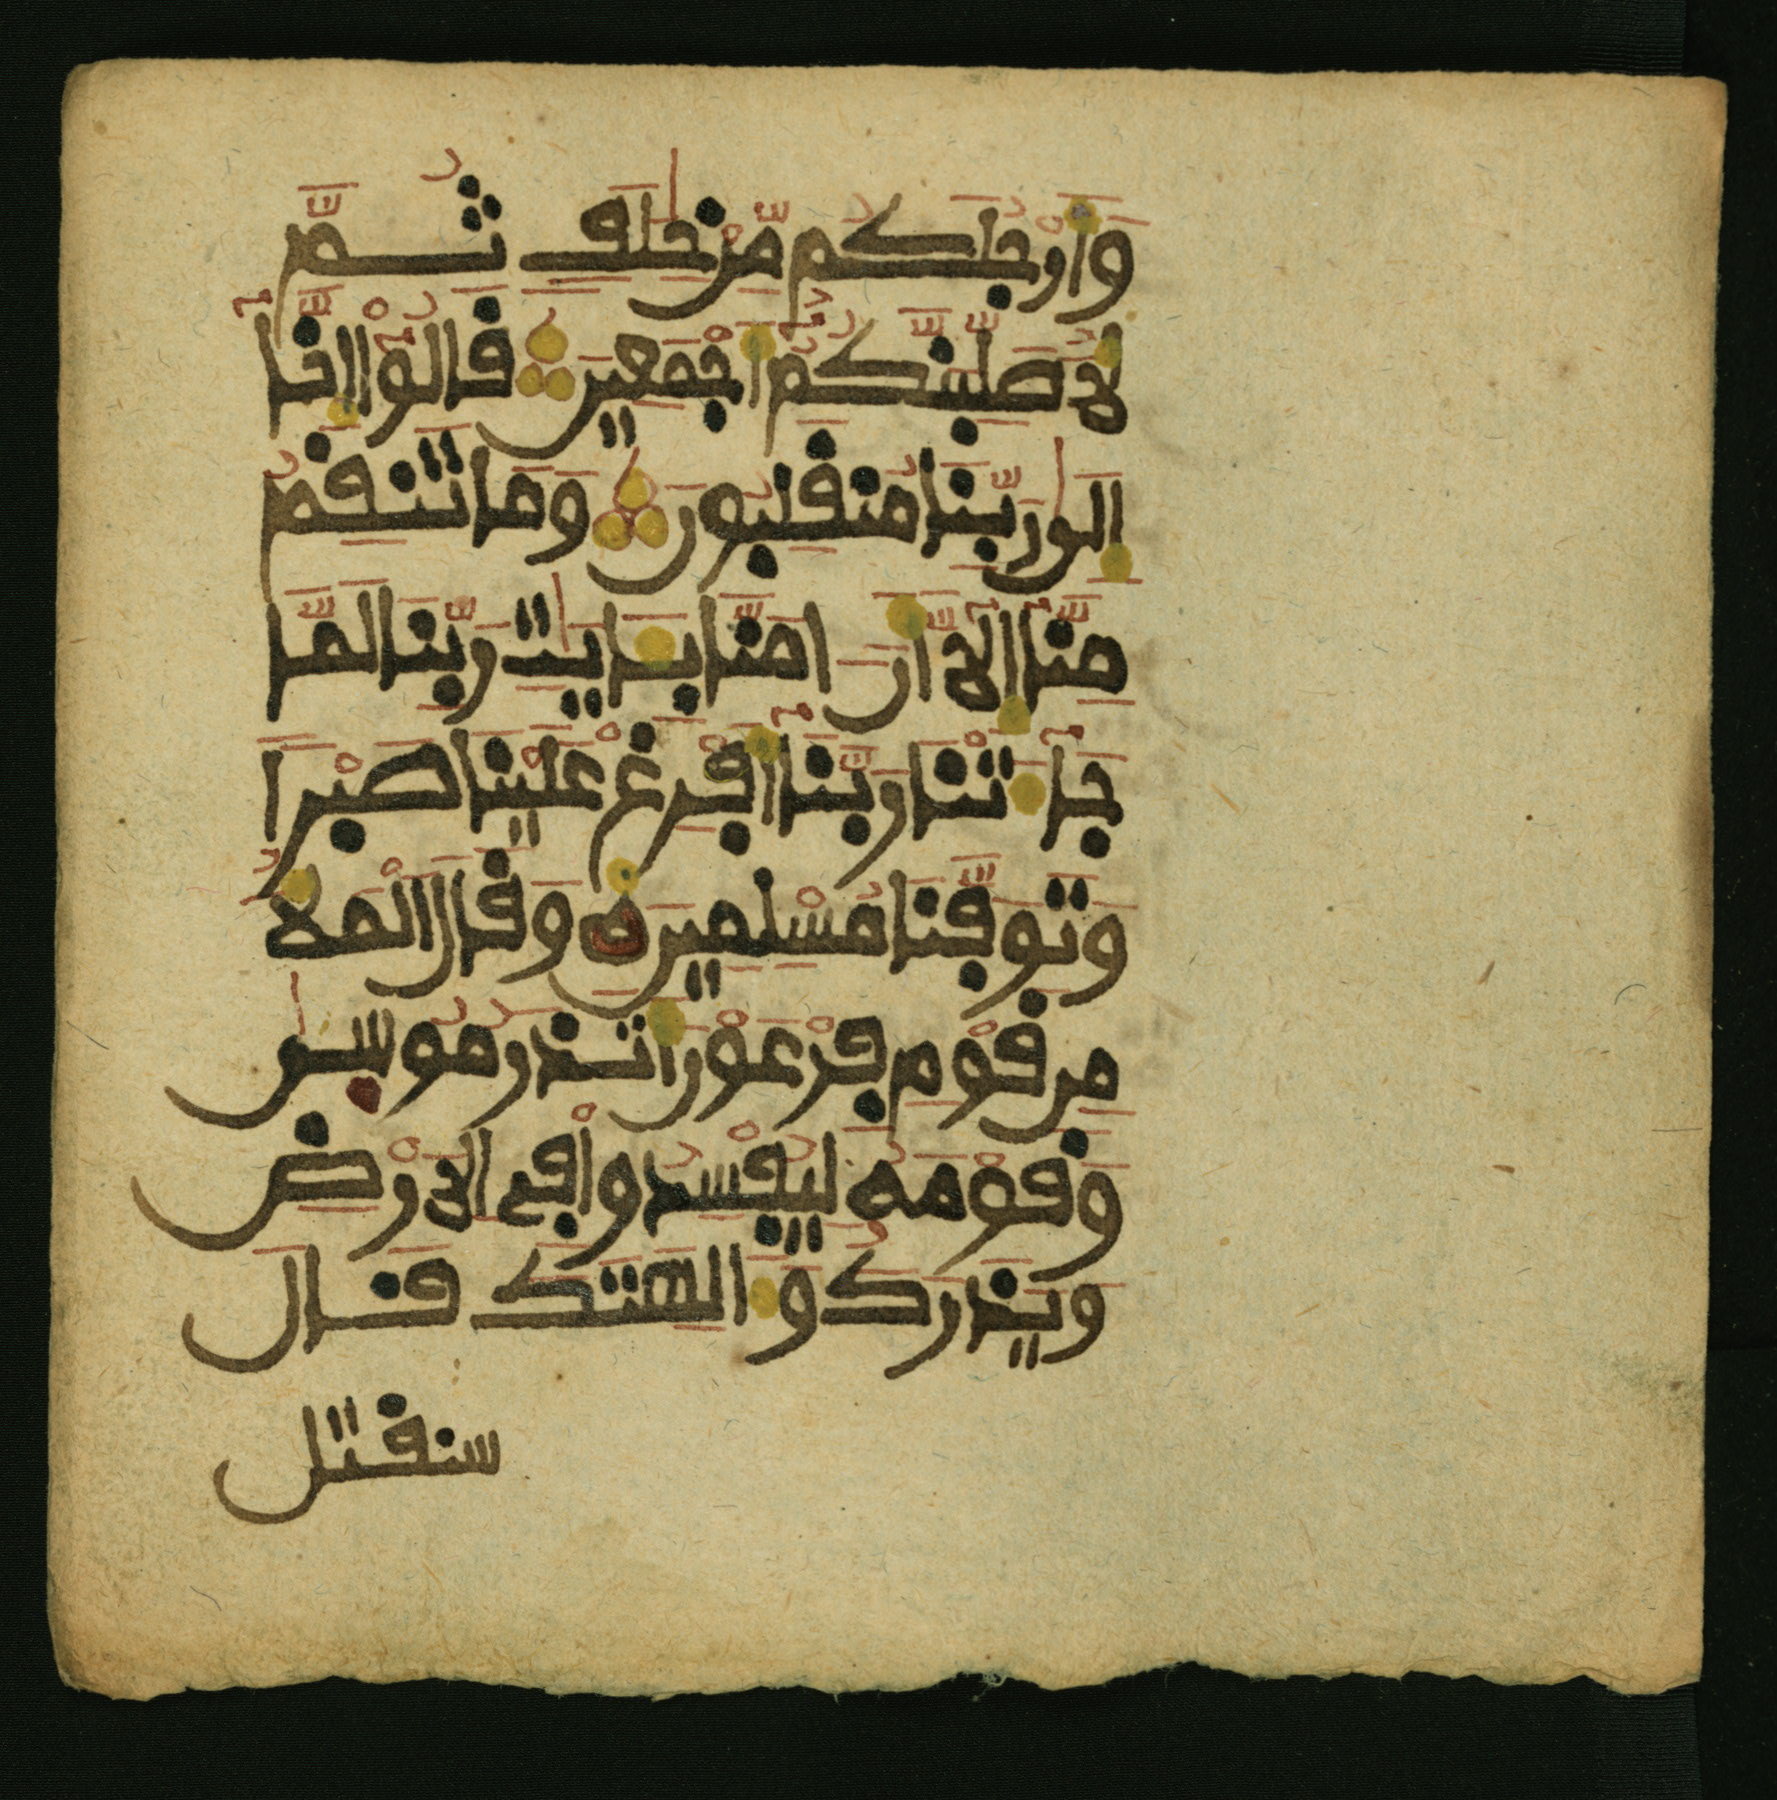 وَأَرْجُلَكُم مِّنْ خِلَٰفٍ ثُمَّ
لَأُصَلِّبَنَّكُمُۥٓ أَجْمَعِينَ قَالُوٓاْ إِنَّآ
إِلَىٰ رَبِّنَا مُنقَلِبُونَ وَمَا تَنقِمُ
مِنَّآ إِلَّآ أَنَ ـٰامَنَّا بِـَٔايَٰتِ رَبِّنَا لَمَّا
جَآءَتْنَا رَبَّنَآ أَفْرِغْ عَلَيْنَا صَبْرًا
وَتَوَفَّنَا مُسْلِمِينَ وَقَالَ الْمَلَأُ
مِن قَوْمِ فِرْعَوْنَ أَتَذَرُ مُوسَىٰ
وَقَوْمَهُ لِيُفْسِدُواْ فِي الْأَرْضِ
وَيَذَرَكَ وَءَالِهَتَكَ قَالَ
سنقتل